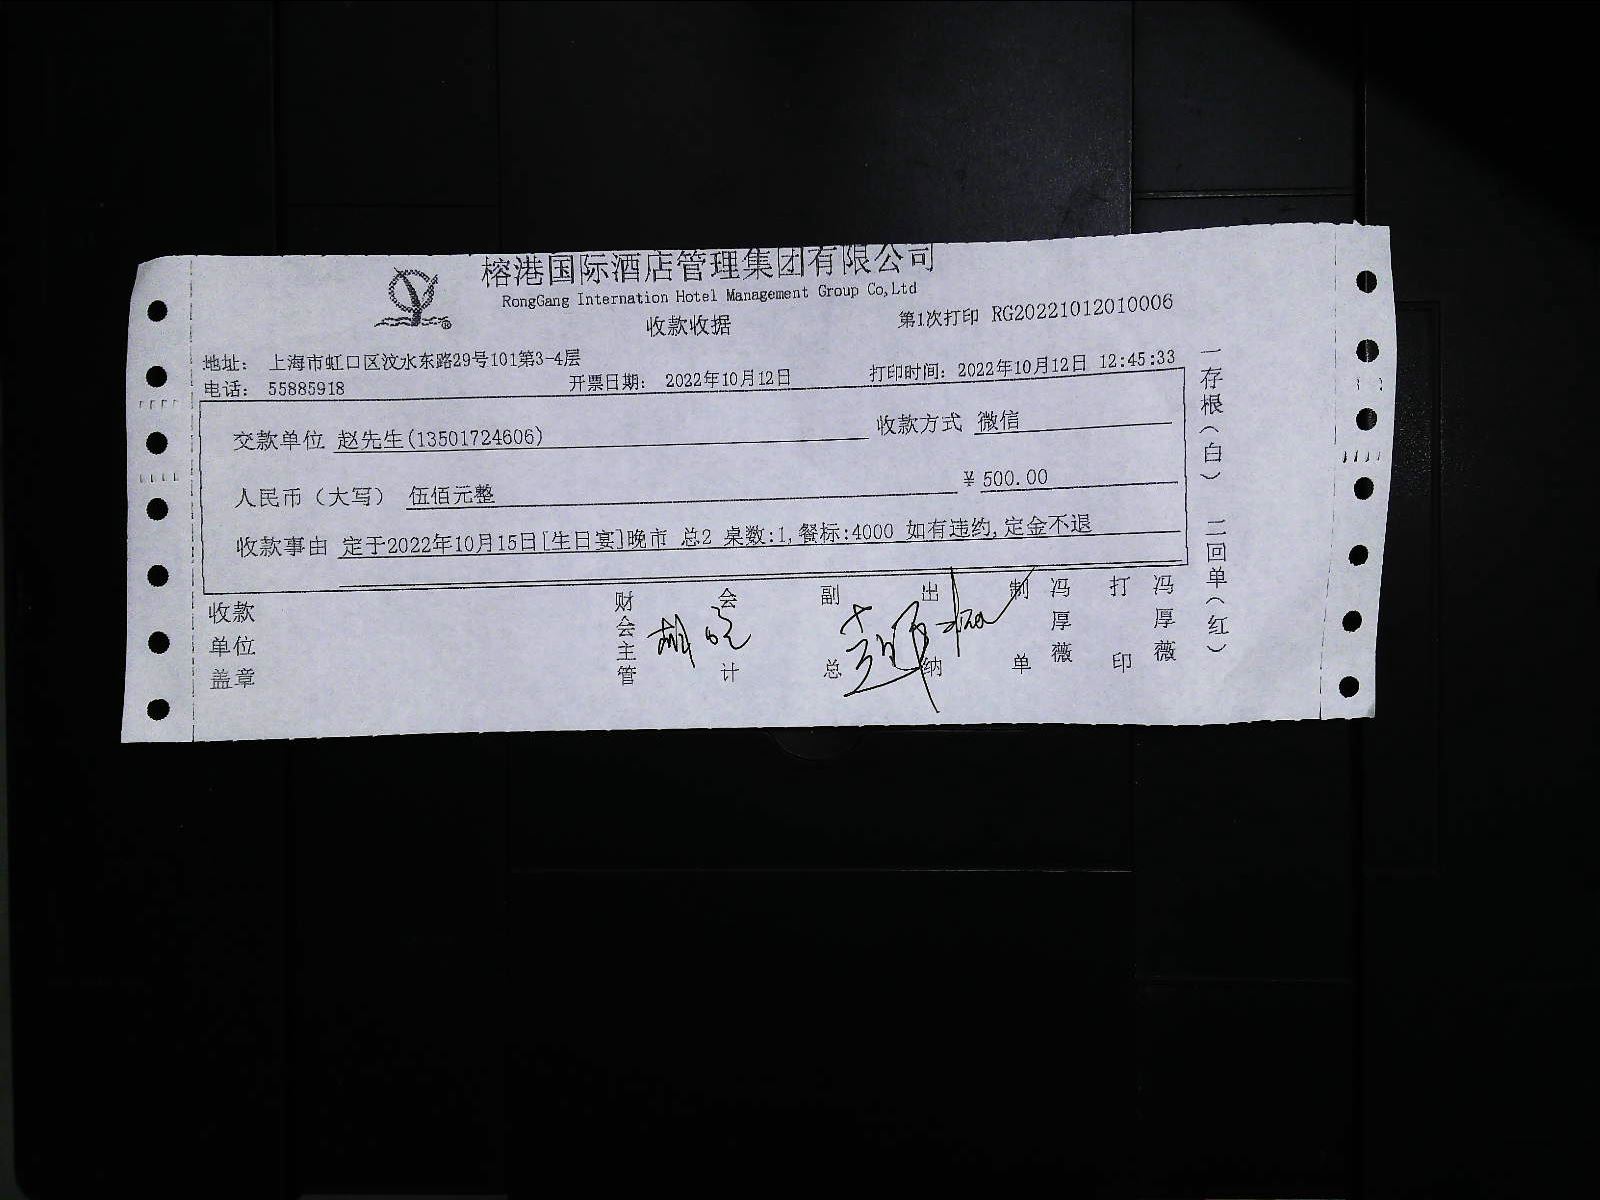 榕港国际酒店管理集团有限公司
RongGang Internation Hotel Management Group Co,Ltd
收款收据
第1次打印 RG20221012010006
地址： 上海市虹口区汶水东路29号101第3-4层
电话： 55885918 开票日期： 2022年10月12日 打印时间：2022年10月12日 12:45:33
交款单位 赵先生(13501724606) 收款方式 微信
人民币（大写） 伍佰元整 ¥500.00
收款事由 定于2022年10月15日[生日宴]晚市 总2 桌数:1,餐标:4000 如有违约,定金不退
收款单位盖章
财会主管
会计
副总
出纳
制单 冯厚薇
打印 冯厚薇
一存根（白） 二回单（红）
®